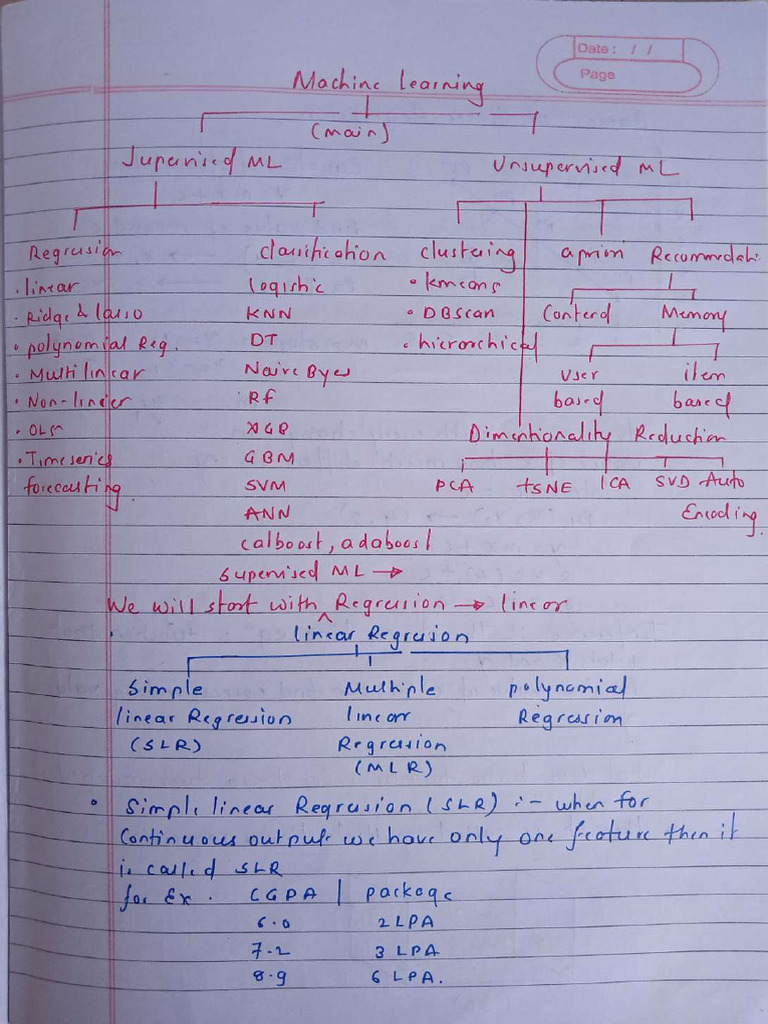 Date : / /
Page
Machine Learning
(main)
Supervised ML Unsupervised ML
Regression classification clustering apriori Recommendati
• linear Logistic • kmeans Contend Memory
• Ridge & lasso KNN • DBscan
• polynomial Reg. DT • hierarchical user item
• Multi linear Naive Byes based based
• Non-linier Rf
• OLS XGB Dimentionality Reduction
• Timeseries GBM PCA tSNE ICA SVD Auto
forecasting. SVM Encoding.
ANN
catboost, adaboost
Supervised ML →
We will start with ^ Regression → linear
linear Regression
Simple Multiple polynomial
linear Regression linear Regression
(SLR) Regression
(MLR)
• Simple linear Regression (SLR) :- when for
Continuous output we have only one feature then it
is called SLR
for Ex. CGPA | package
6.0 2 LPA
7.2 3 LPA
8.9 6 LPA.